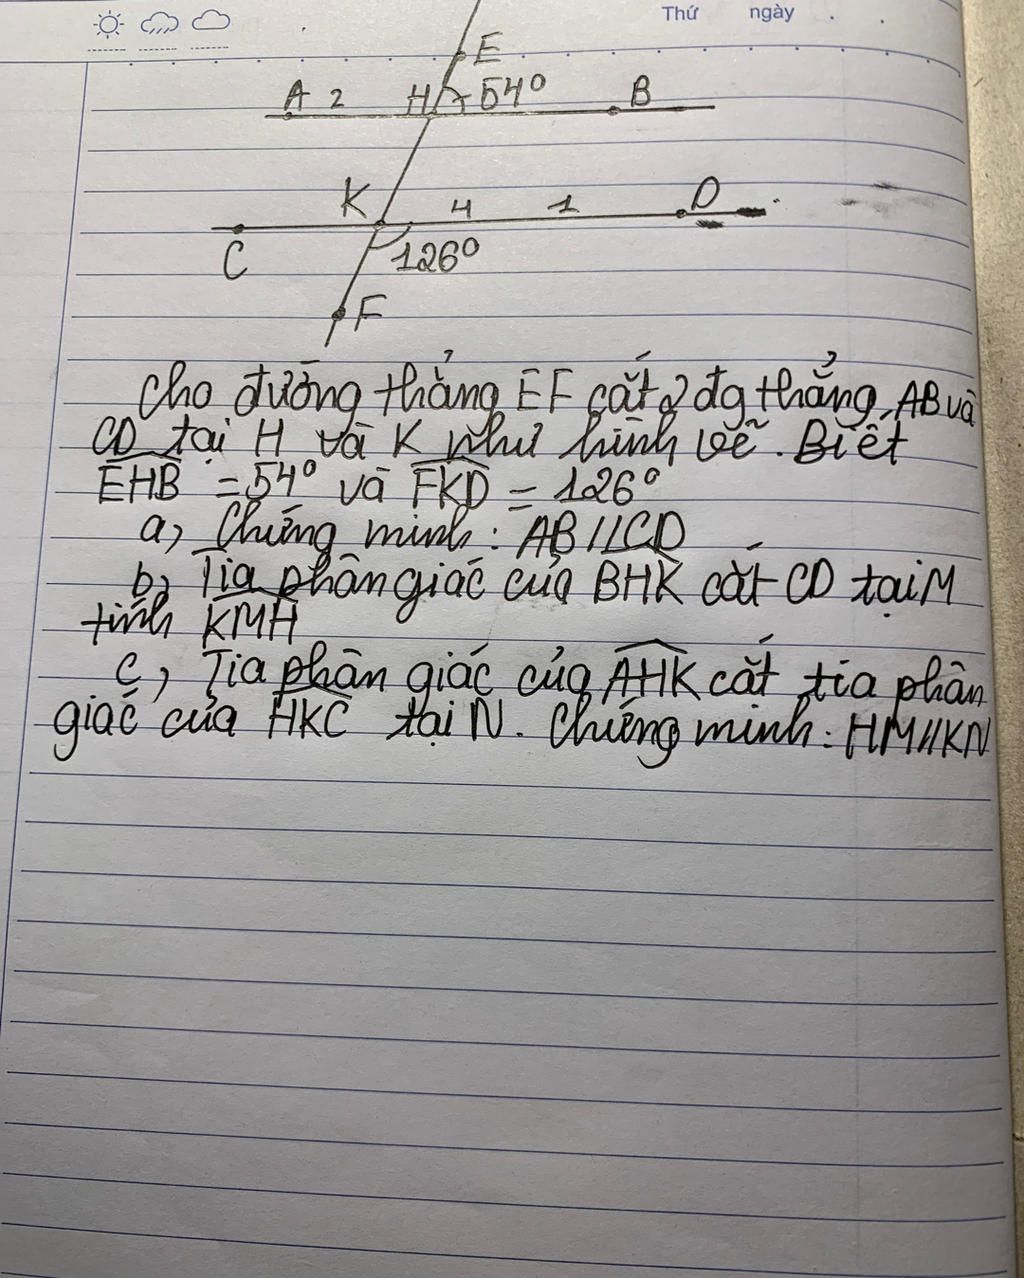 Thứ ngày . .
E
A 2 H 54° B
K 4 1 D
C 126°
F
Cho đường thẳng EF cắt 2 đg thẳng AB và
CD tại H và K như hình vẽ. Biết
EHB = 54° và FKD = 126°
a, Chứng minh: AB//CD
b, Tia phân giác của BHK cắt CD tại M
tính KMH
c, Tia phân giác của AHK cắt tia phân
giác của HKC tại N. Chứng minh: HM//KN